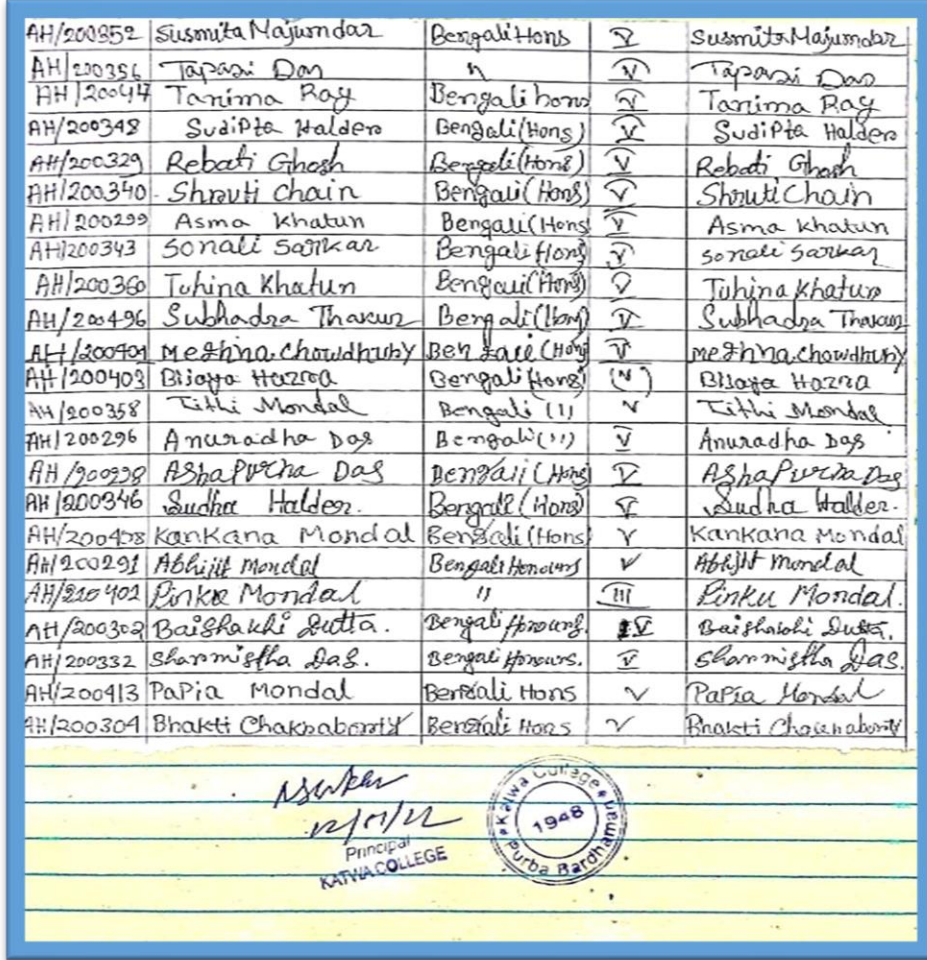 AH/200352 Susmita Majumdar Bengali Hons V Susmita Majumdar
AH/200356 Tapasi Das " V Tapasi Das
AH/20044 Tanima Ray Bengali hons V Tanima Ray
AH/200348 Sudipta Halder Bengali (Hons) V Sudipta Halder
AH/200329 Rebati Ghosh Bengali (Hons) V Rebati Ghosh
AH/200340 Shruti Chain Bengali (Hons) V Shruti Chain
AH/200299 Asma Khatun Bengali (Hons) V Asma Khatun
AH/200343 Sonali Sarkar Bengali (Hons) V Sonali Sarkar
AH/200360 Tuhina Khatun Bengali (Hons) V Tuhina Khatun
AH/200496 Subhadra Thakur Bengali (Hons) V Subhadra Thakur
Meghna Chowdhury Bengali (Hons) V Meghna Chowdhury
AH/200403 Bijoya Hazra Bengali (Hons) (V) Bijoya Hazra
AH/200358 Tithi Mondal Bengali (11) V Tithi Mondal
AH/200296 Anuradha Das Bengali (11) V Anuradha Das
Asha Purna Das Bengali (Hons) V Asha Purna Das
AH/200346 Sudha Halder. Bengali (Hons) V Sudha Halder.
AH/200408 Kankana Mondal Bengali (Hons) V Kankana Mondal
AH/200291 Abhijit Mondal Bengali Honours V Abhijit Mondal
AH/210402 Pinku Mondal " III Pinku Mondal.
AH/200302 Baishakhi Dutta. Bengali Honours. V Baishakhi Dutta.
AH/200332 Sharmistha Das. Bengali Honours. V Sharmistha Das.
AH/200413 Papia Mondal Bengali Hons V Papia Mondal
AH/200304 Bhakti Chakraborty Bengali Hons V Bhakti Chakraborty
Principal
KATWA COLLEGE
Katwa College * Purba Bardhaman *
1948